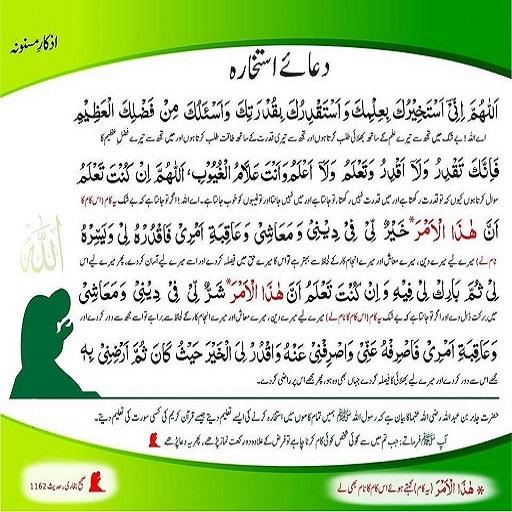 اذکارِ مسنونہ
دعائے استخارہ
اَللّٰهُمَّ اِنِّیْ اَسْتَخِیْرُكَ بِعِلْمِكَ وَاَسْتَقْدِرُكَ بِقُدْرَتِكَ وَاَسْئَلُكَ مِنْ فَضْلِكَ الْعَظِیْمِ
اے اللہ! بے شک میں تجھ سے تیرے علم کے ساتھ بھلائی طلب کرتا ہوں اور تجھ سے تیری قدرت کے ساتھ طاقت طلب کرتا ہوں اور میں تجھ سے تیرے فضلِ عظیم کا
فَاِنَّكَ تَقْدِرُ وَلَآ اَقْدِرُ وَتَعْلَمُ وَلَآ اَعْلَمُ وَاَنْتَ عَلَّامُ الْغُیُوْبِ، اَللّٰهُمَّ اِنْ كُنْتَ تَعْلَمُ
سوال کرتا ہوں کیوں کہ تو قدرت رکھتا ہے اور میں قدرت نہیں رکھتا، تو جانتا ہے اور میں نہیں جانتا اور تو غیبوں کو خوب جانتا ہے۔ اے اللہ! اگر تو جانتا ہے کہ بے شک یہ کام (اس کام کا
اَنَّ هٰذَا الْاَمْرَ* خَیْرٌ لِّیْ فِیْ دِیْنِیْ وَمَعَاشِیْ وَعَاقِبَةِ اَمْرِیْ فَاقْدُرْهُ لِیْ وَیَسِّرْهُ
نام لے) میرے لیے میرے دین، میرے معاش اور میرے انجام کار کے لحاظ سے بہتر ہے تو اس کا میرے حق میں فیصلہ کردے اور اسے میرے لیے آسان کردے، پھر میرے لیے اس
لِیْ ثُمَّ بَارِكْ لِیْ فِیْهِ وَاِنْ كُنْتَ تَعْلَمُ اَنَّ هٰذَا الْاَمْرَ* شَرٌّ لِّیْ فِیْ دِیْنِیْ وَمَعَاشِیْ
میں برکت ڈال دے اور اگر تو جانتا ہے کہ بے شک یہ کام (اس کام کا نام لے) میرے لیے میرے دین، میرے معاش اور میرے انجام کار کے لحاظ سے برا ہے تو اسے مجھ سے دور کردے اور
وَعَاقِبَةِ اَمْرِیْ فَاصْرِفْهُ عَنِّیْ وَاصْرِفْنِیْ عَنْهُ وَاقْدُرْ لِیَ الْخَیْرَ حَیْثُ كَانَ ثُمَّ اَرْضِنِیْ بِهٖ
مجھے اس سے دور کردے اور میرے لیے بھلائی کا فیصلہ کردے جہاں بھی وہ ہو، پھر مجھے اس پر راضی کردے۔
اللہ
حضرت جابر بن عبداللہ رضی اللہ عنہما کا بیان ہے کہ رسول اللہ ﷺ ہمیں تمام کاموں میں استخارہ کرنے کی ایسے تعلیم دیتے جیسے قرآن کریم کی کسی سورت کی تعلیم دیتے۔
آپ ﷺ فرماتے: جب تم میں سے کوئی شخص کوئی کام کرنا چاہے تو فرض کے علاوہ دو رکعت نماز پڑھے، پھر یہ دعا پڑھے
* هٰذَا الْاَمْرَ (یہ کام) کہتے ہوئے اس کام کا نام بھی لے
صحیح بخاری، حدیث 1162